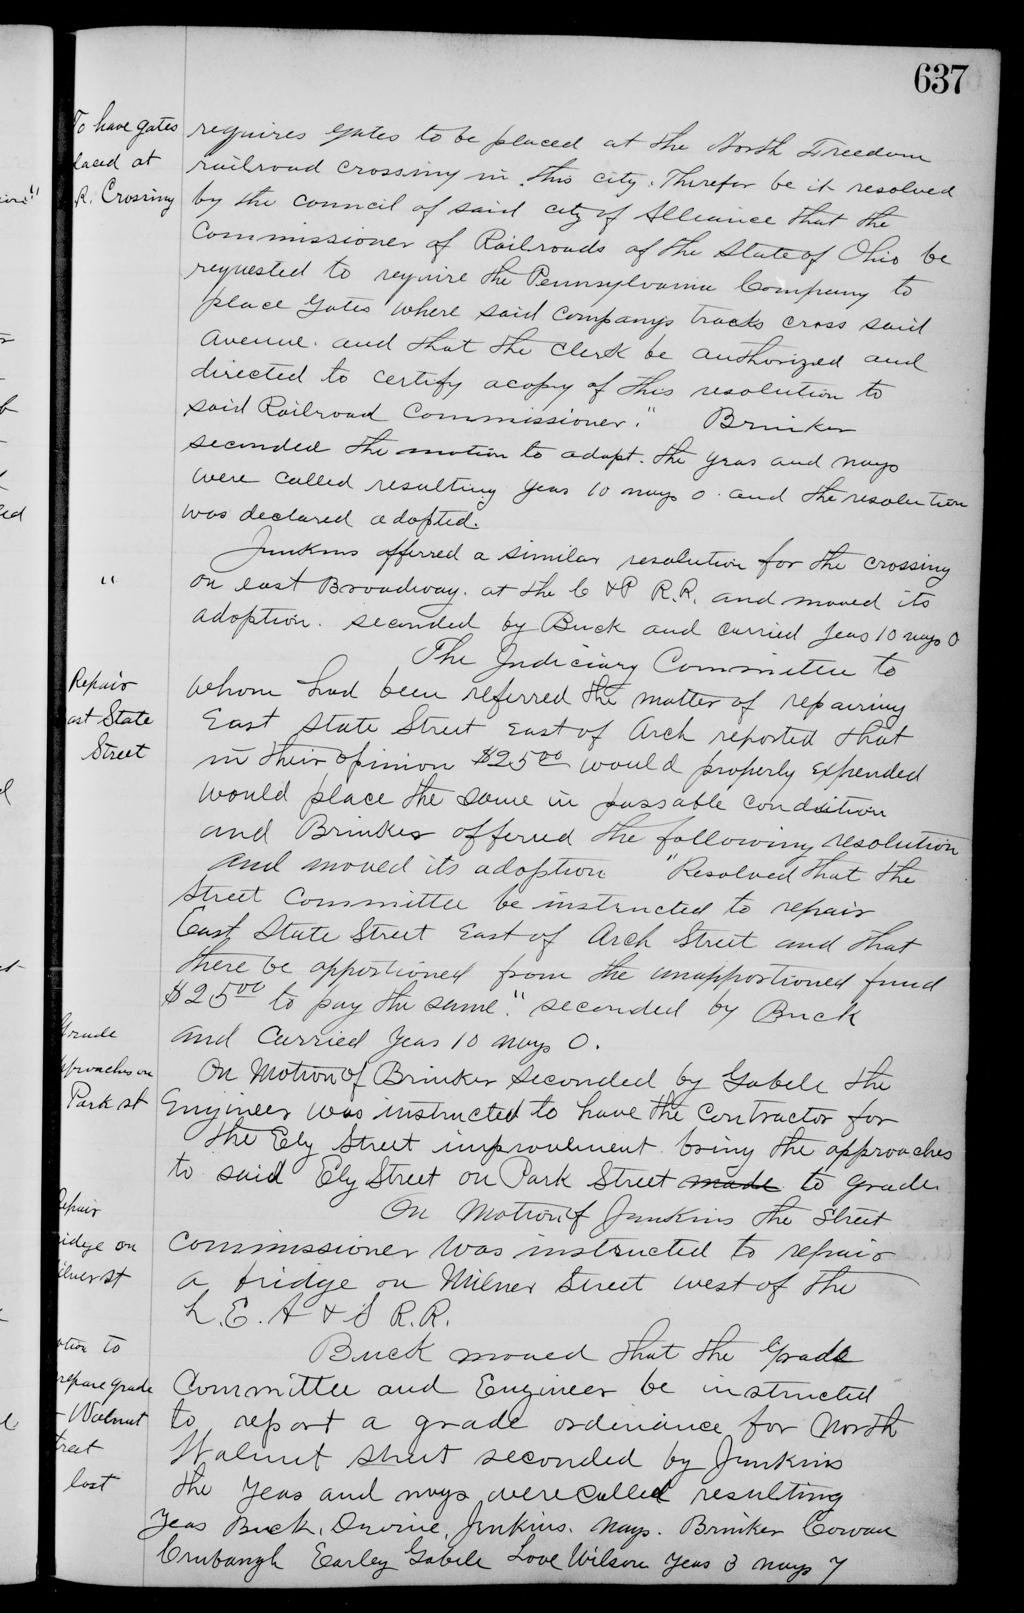 637
To have gates
laced at
R. Crossing
requires gates to be placed at the North Freedom
railroad crossing in this city. Therefor be it resolved
by the council of said city of Alliance that the
Commissioner of Railroads of the State of Ohio be
requested to require the Pennsylvania Company to
place gates where said companys tracks cross said
Avenue. and that the clerk be authorized and
directed to certify a copy of this resolution to
said Railroad Commissioner." Brinker
seconded the motion to adopt. the yeas and nays
were called resulting yeas 10 nays 0. and the resolution
was declared adopted.
"
Junkins offerred a similar resolution for the crossing
on east Broadway. at the C & P R.R. and moved its
adoption. seconded by Buck and carried yeas 10 nays 0
Repair
ast State
Street
The Judiciary Committee to
whom had been referred the matter of repairing
East State Street East of Arch reported that
in their opinion $25.00 would properly expended
would place the same in passable condition
and Brinker offered the following resolution
and moved its adoption "Resolved that the
Street Committee be instructed to repair
East State Street East of Arch Street and that
there be apportioned from the unapportioned fund
$25.00 to pay the same." seconded by Buck
and carried yeas 10 nays 0.
Grade
pproaches on
Park st
On Motion of Brinker seconded by Gabele the
Engineer was instructed to have the contractor for
the Ely Street improvement bring the approaches
to said Ely Street on Park Street made to grade
Repair
ridge on
ilner st
On Motion of Junkins the Street
Commissioner was instructed to repair
a bridge on Milner Street west of the
L. E. A & S R.R.
otion to
repare grade
Walnut
treet
lost
Buck moved that the Grade
Committee and Engineer be instructed
to report a grade ordinance for North
Walnut street seconded by Junkins
the yeas and nays were called resulting
Yeas Buck, Devine, Junkins. Nays. Brinker Cowan
Crubaugh Earley Gabele Love Wilson yeas 3 nays 7